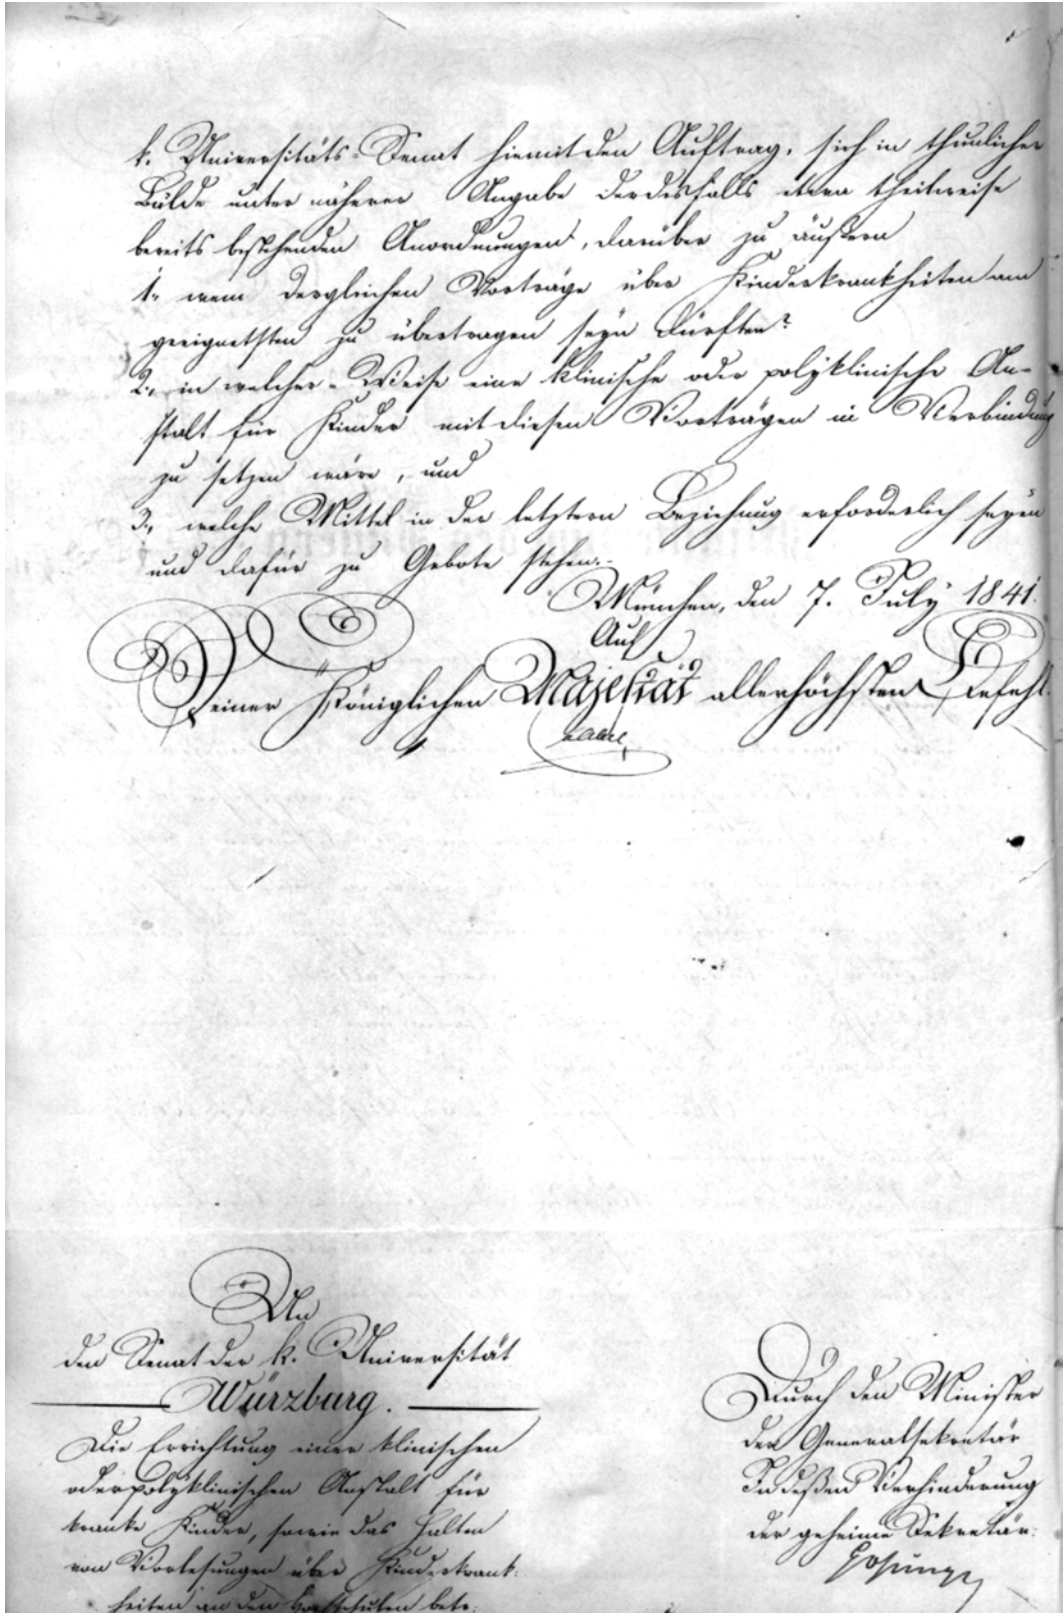 k. Universitäts-Senat hiemit den Auftrag, sich in thunlicher
Bälde unter näherer Angabe der desfalls etwa theilweise
bereits bestehenden Anordnungen, darüber zu äußern
1., wem dergleichen Vorträge über Kinderkrankheiten am
geeignetsten zu übertragen seyn dürften?
2., in welcher Weise eine klinische oder polyklinische An-
stalt für Kinder mit diesen Vorträgen in Verbindung
zu setzen wäre, und
3., welche Mittel in der letztern Beziehung erforderlich seyen
und dafür zu Gebote stehen.
München, den 7. July 1841.
Auf
Seiner Königlichen Majestät allerhöchsten Befehl.
An
den Senat der k. Universität
Würzburg.
Die Errichtung einer klinischen
oder polyklinischen Anstalt für
kranke Kinder, sowie das Halten
von Vorlesungen über Kinderkrank-
heiten an den Hochschulen betr.
Durch den Minister
der Generalsekretär
In deßen Verhinderung
der geheime Sekretär: